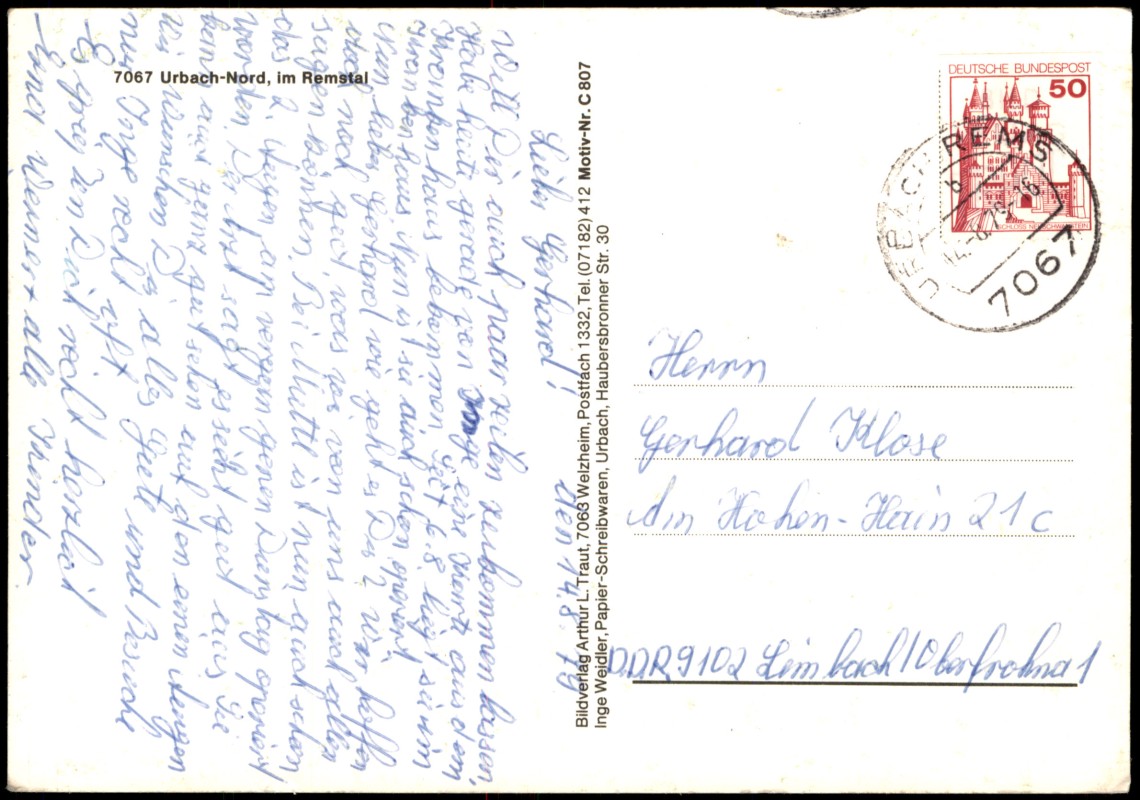 7067 Urbach-Nord, im Remstal
Lieber Gerhard!
den 14.8.79
Will Dir auch paar zeiln zukommen lassen,
Habe heute gerade von Inge eine Karte aus dem
Krankenhaus bekommen, seit 6.8 liegt sie im
Krankenhaus Nun ist sie auch schon operiert
Nun lieber Gerhard wie geht es Dir wir hoffen
doch noch gut, was wir von uns auch allen
sagen können. Bei Mutti ist nun auch schon
das 2. Augen am vergangenen Dienstag operiert
worden. Der Arzt sagt es sieht gut aus Sie
kann auch ganz gut sehen auf den einen Augen
Wir wünschen Dir alles Gute und Besuche
nur Inge recht oft
Es grüßen Dich recht herzlich
Erna Werner alle Kinder
Bildverlag Arthur L. Traut, 7063 Welzheim, Postfach 1332, Tel. (07182) 412 Motiv-Nr. C 807
Inge Weidler, Papier-Schreibwaren, Urbach, Haubersbronner Str. 30
DEUTSCHE BUNDESPOST
50
SCHLOSS NEUSCHWANSTEIN
REMS
b
14.-8.79-16
7067
Herrn
Gerhard Klose
Am Hohen-Hain 21c
DDR 9102 Limbach/Oberfrohna 1